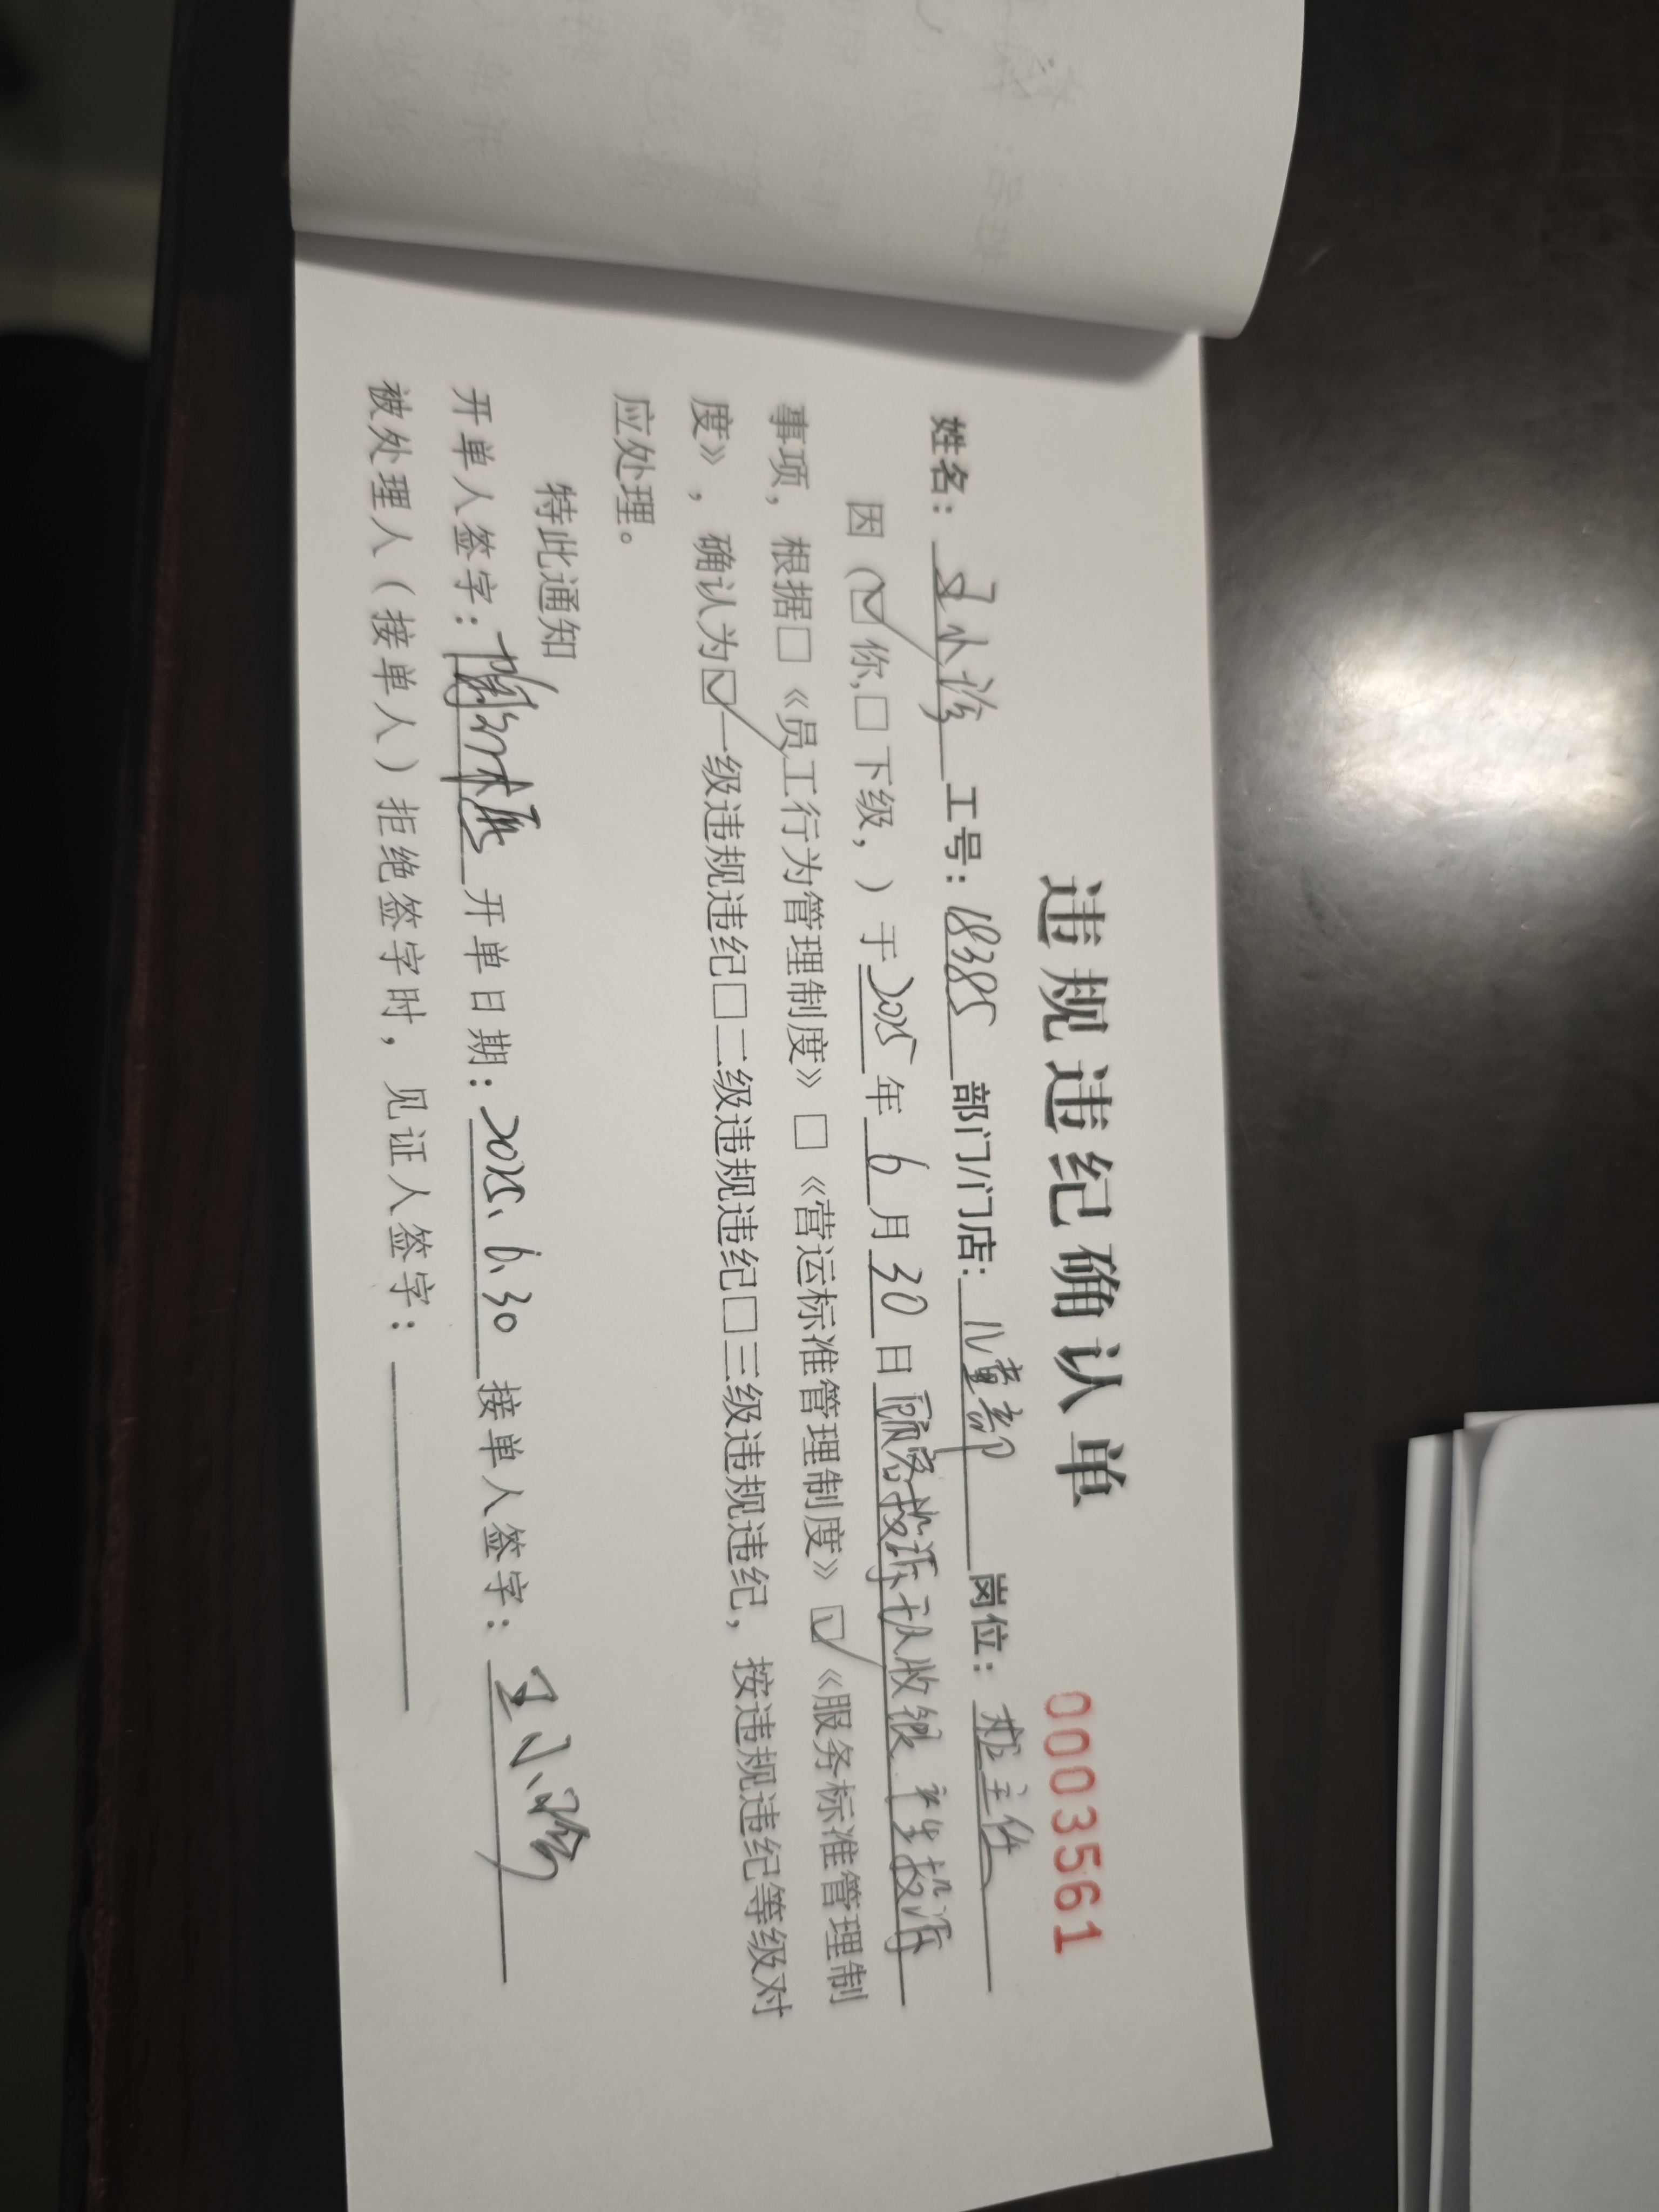 违规违纪确认单 0003561
姓名: 王小 工号: 18385 部门/门店: 儿童部 岗位: 班主任
因 (☑你,□下级, ) 于 2025 年 6 月 30 日 顾客投诉无人收银 产生投诉
事项, 根据□《员工行为管理制度》□《营运标准管理制度》☑《服务标准管理制
度》, 确认为☑一级违规违纪□二级违规违纪□三级违规违纪, 按违规违纪等级对
应处理。
特此通知
开单人签字: 开单日期: 2025.6.30 接单人签字: 王小
被处理人(接单人)拒绝签字时, 见证人签字: